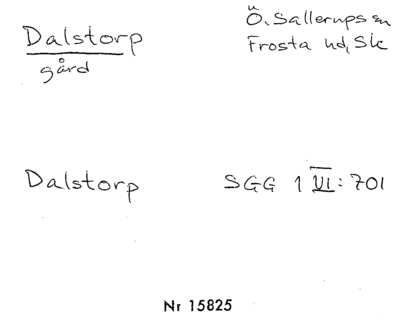 Dalstorp
gård
Ö. Sallerups sn
Frosta hd, Sk
Dalstorp SGG 1 VI: 701
Nr 15825